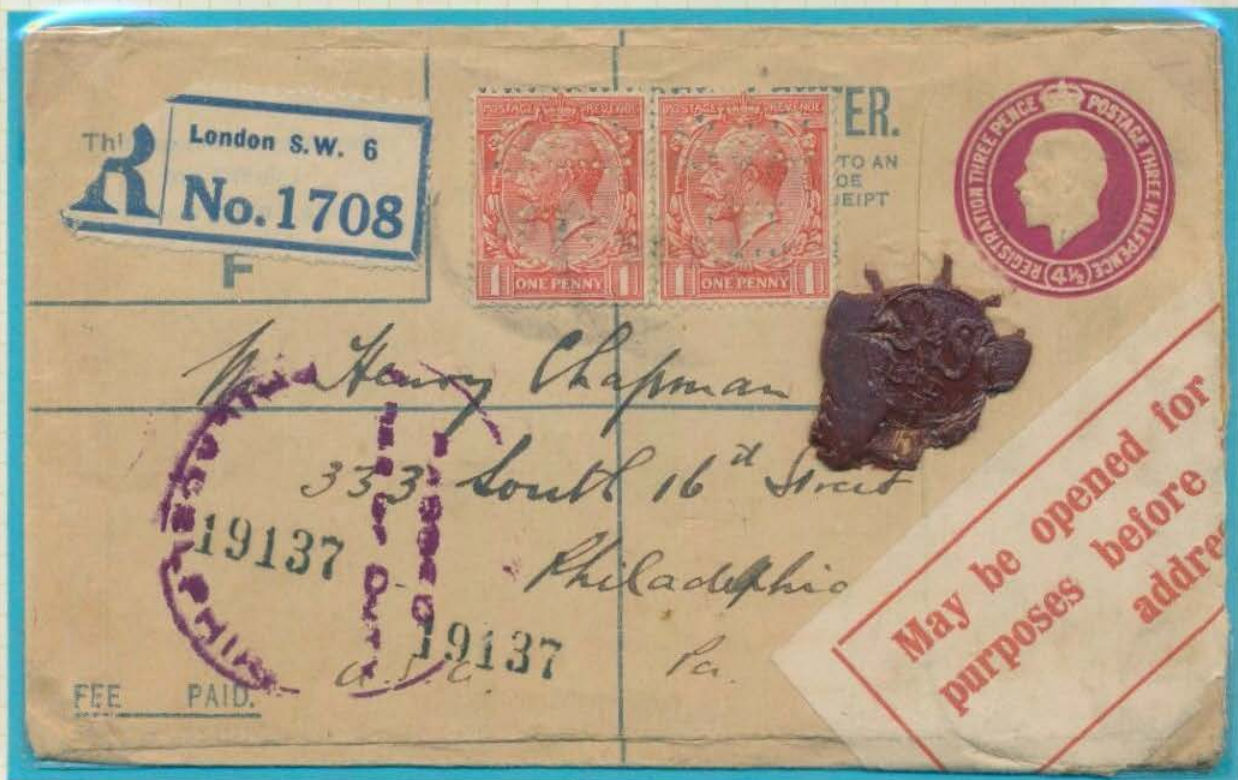 ER.
TO AN
OE
EIPT
Thi
R
London S.W. 6
No. 1708
F
POSTAGE REVENUE
1 ONE PENNY 1
POSTAGE REVENUE
1 ONE PENNY 1
REGISTRATION THREE PENCE POSTAGE THREE HALFPENCE
4½
Henry Chapman
333 South 16th Street
Philadelphia
Pa.
U.S.A.
19137
19137
FEE PAID.
May be opened for
purposes before
addre